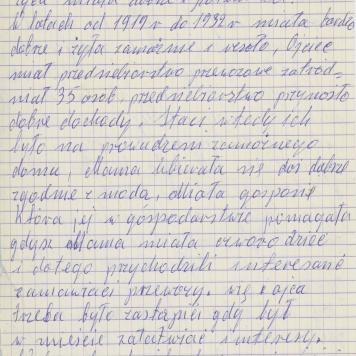 życia miała dobra i
w latach od 1919 r do 1932 r miała bardzo
dobre i żyła zamożnie i wesoło, Ojciec
miał przedsiebiorstwo przewozowe zatród=
niał 35 osob, przedsiebiorstwo przynosło
dobre dochody. Stać wtedy ich
było na prowadzeni zamożnego
domu, Mama ubierała się doś dobre
zgodnie z modą, Miała gosposie
która jej w gospodarstwie pomagała
gdysz Mama miała czworo dzieć
i dotego przychodzili interesanć
zamawiać przewozy. więc ojca
trzeba było zastąpić gdy był
w mieście załatwiać interesy.